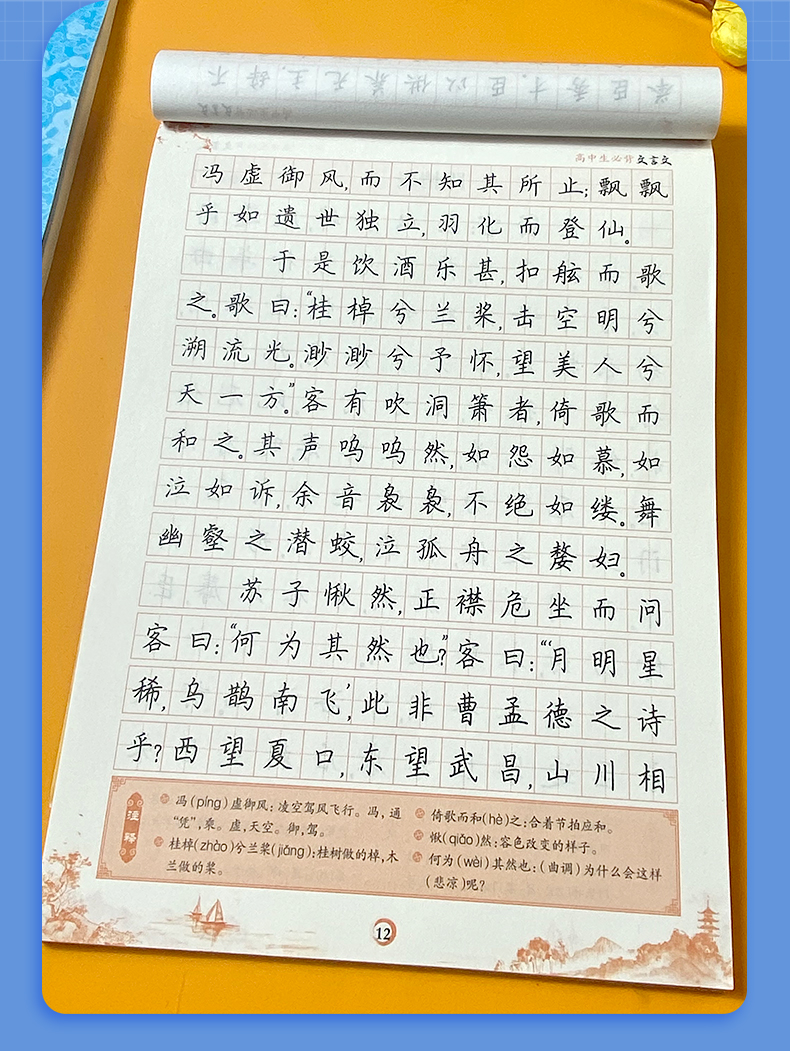 高中生必背文言文
冯虚御风,而不知其所止;飘飘
乎如遗世独立,羽化而登仙。
于是饮酒乐甚,扣舷而歌
之。歌曰:“桂棹兮兰桨,击空明兮
溯流光。渺渺兮予怀,望美人兮
天一方。”客有吹洞箫者,倚歌而
和之。其声呜呜然,如怨如慕,如
泣如诉,余音袅袅,不绝如缕。舞
幽壑之潜蛟,泣孤舟之嫠妇。
苏子愀然,正襟危坐而问
客曰:“何为其然也?”客曰:“‘月明星
稀,乌鹊南飞’,此非曹孟德之诗
乎?西望夏口,东望武昌,山川相
注释
冯(píng)虚御风:凌空驾风飞行。冯,通
“凭”,乘。虚,天空。御,驾。
桂棹(zhào)兮兰桨(jiǎng):桂树做的棹,木
兰做的桨。
倚歌而和(hè)之:合着节拍应和。
愀(qiǎo)然:容色改变的样子。
何为(wèi)其然也:(曲调)为什么会这样
(悲凉)呢?
12